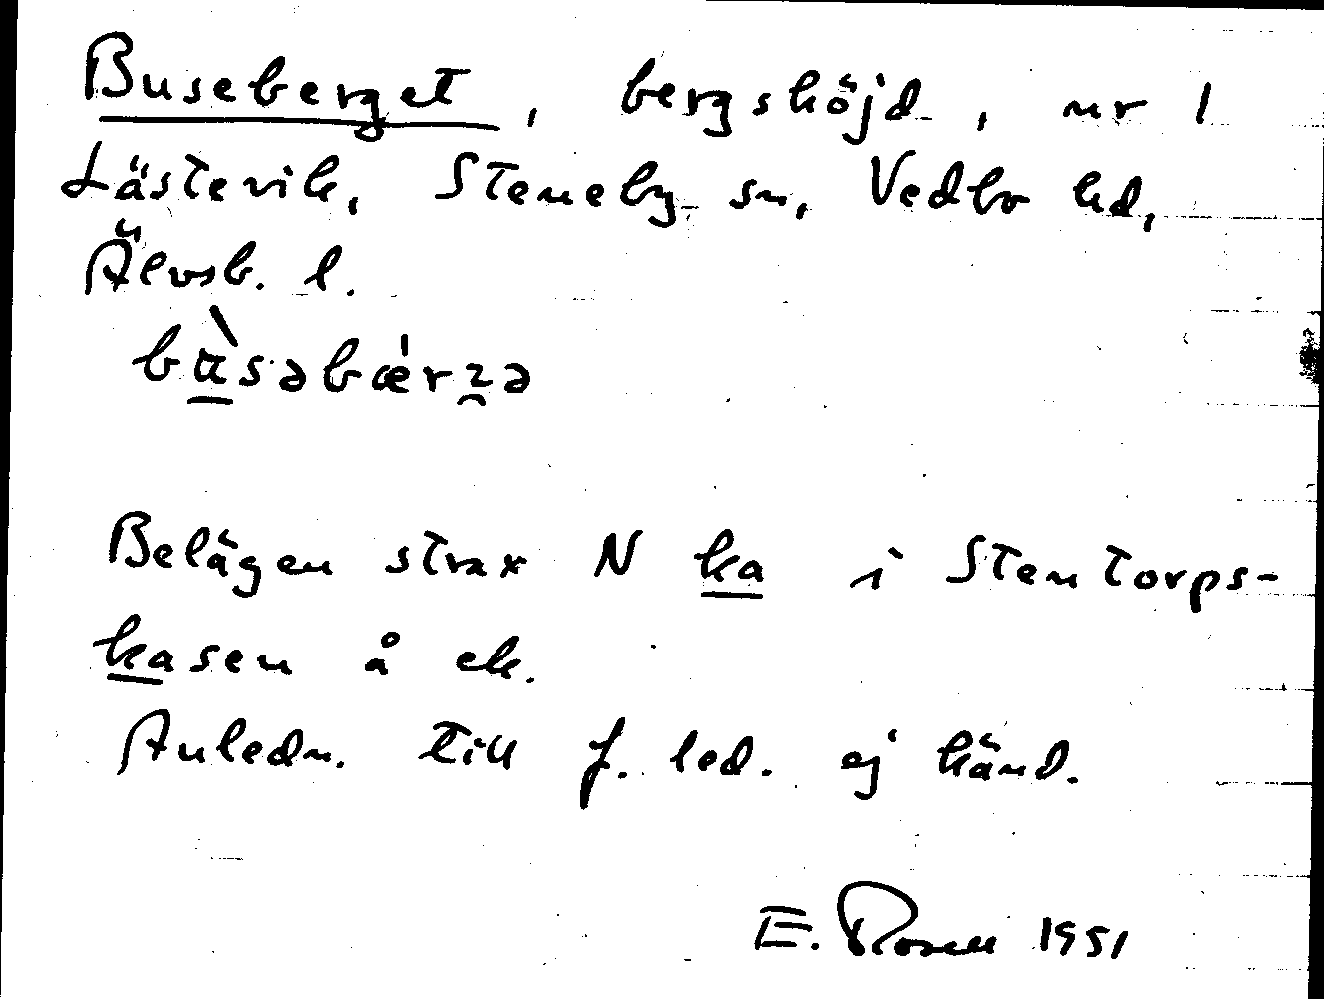 Buseberget, bergshöjd, nr 1
Lästevik, Steneby sn, Vedbo hd,
Älvsb. l.
Belägen strax N ka i Stentorps-
kasen å ek.
Anledn. till f. led. ej känd.
E. Rosell 1951